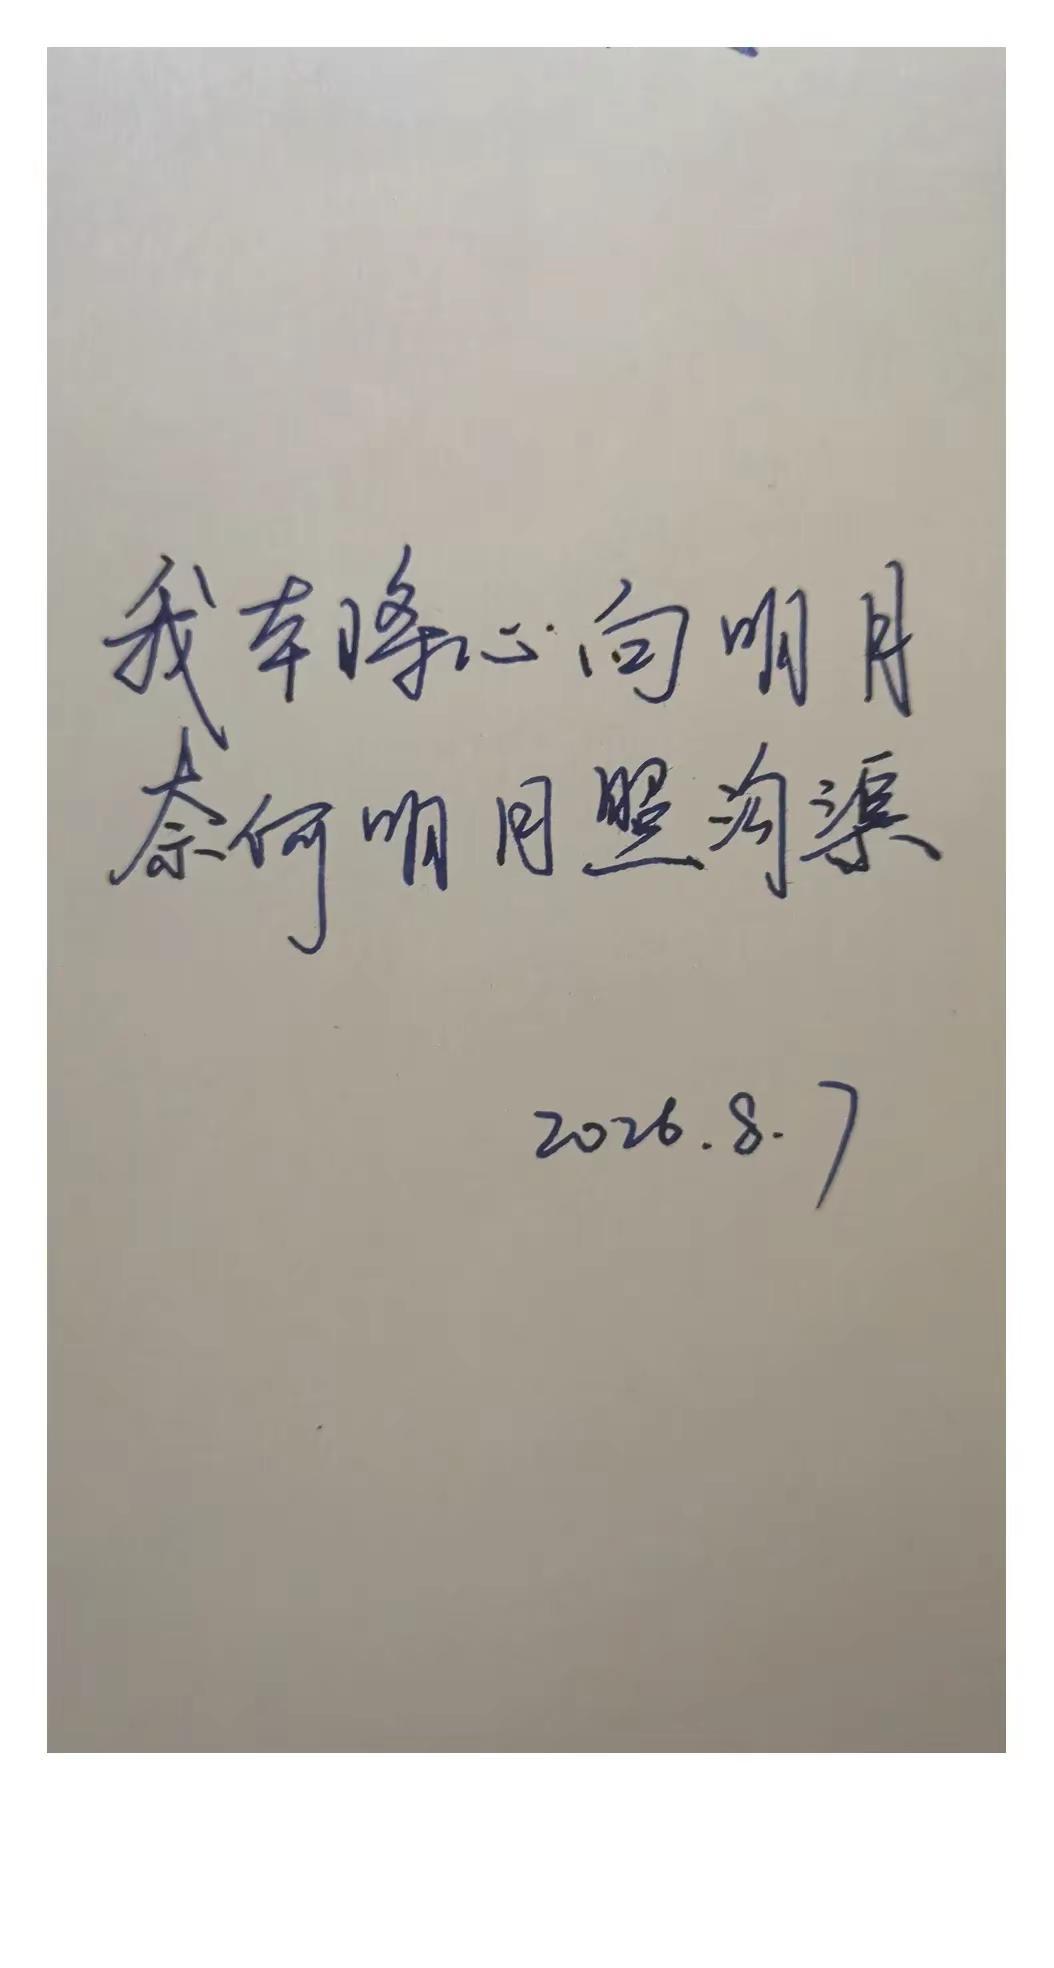 我本将心向明月
奈何明月照沟渠
2026.8.7